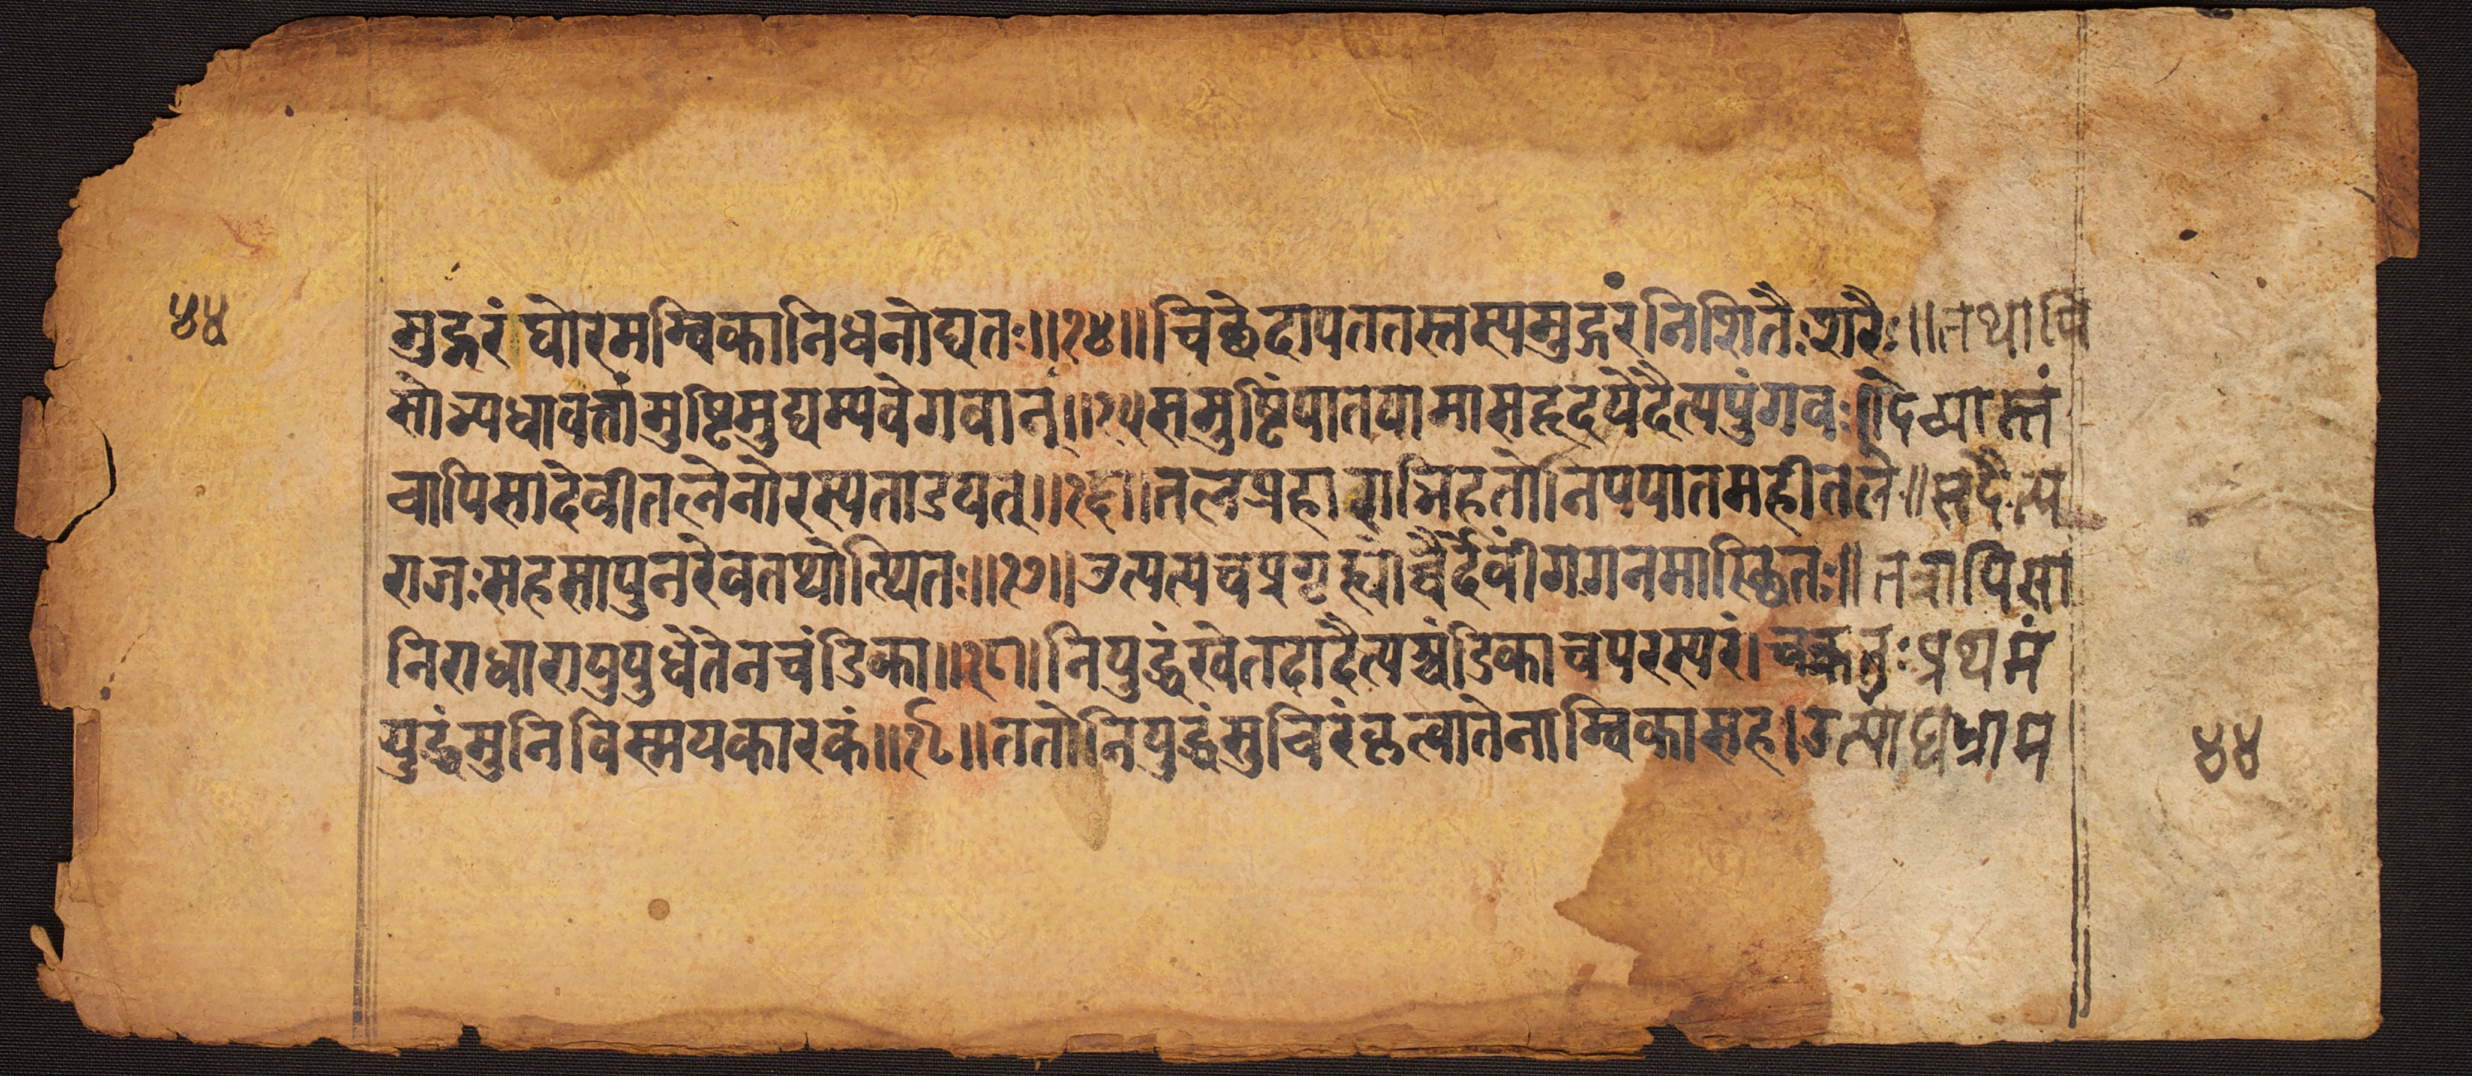 ५४
मुद्गरंघोरमम्बिकानिधनोद्यतः॥१४॥चिछेदापततस्तस्यमुद्गरंनिशितैःशरैः॥तथापि
सोभ्यधावत्तांमुष्टिमुद्यम्यवेगवान्॥१५समुष्टिंपातयामासहृदयेदैत्यपुंगवः।देव्यास्तं
चापिसादेवीतलेनोरस्यताडयत्॥१६॥तलप्रहाराभिहतोनिपपातमहीतले॥सदैत्य
राजःसहसापुनरेवतथोत्थितः॥१७॥उत्पत्यचप्रगृह्योच्चैर्देवींगगनमास्छितः॥तत्रापिसा
निराधारायुयुधेतेनचंडिका॥१८॥नियुद्धंखेतदादैत्यश्चंडिकाचपरस्परं।चक्रतुःप्रथमं
युद्धंमुनिविस्मयकारकं॥१९॥ततोनियुद्धंसुचिरंकृत्वातेनाम्बिकासह।उत्पाद्यभ्राम
५४